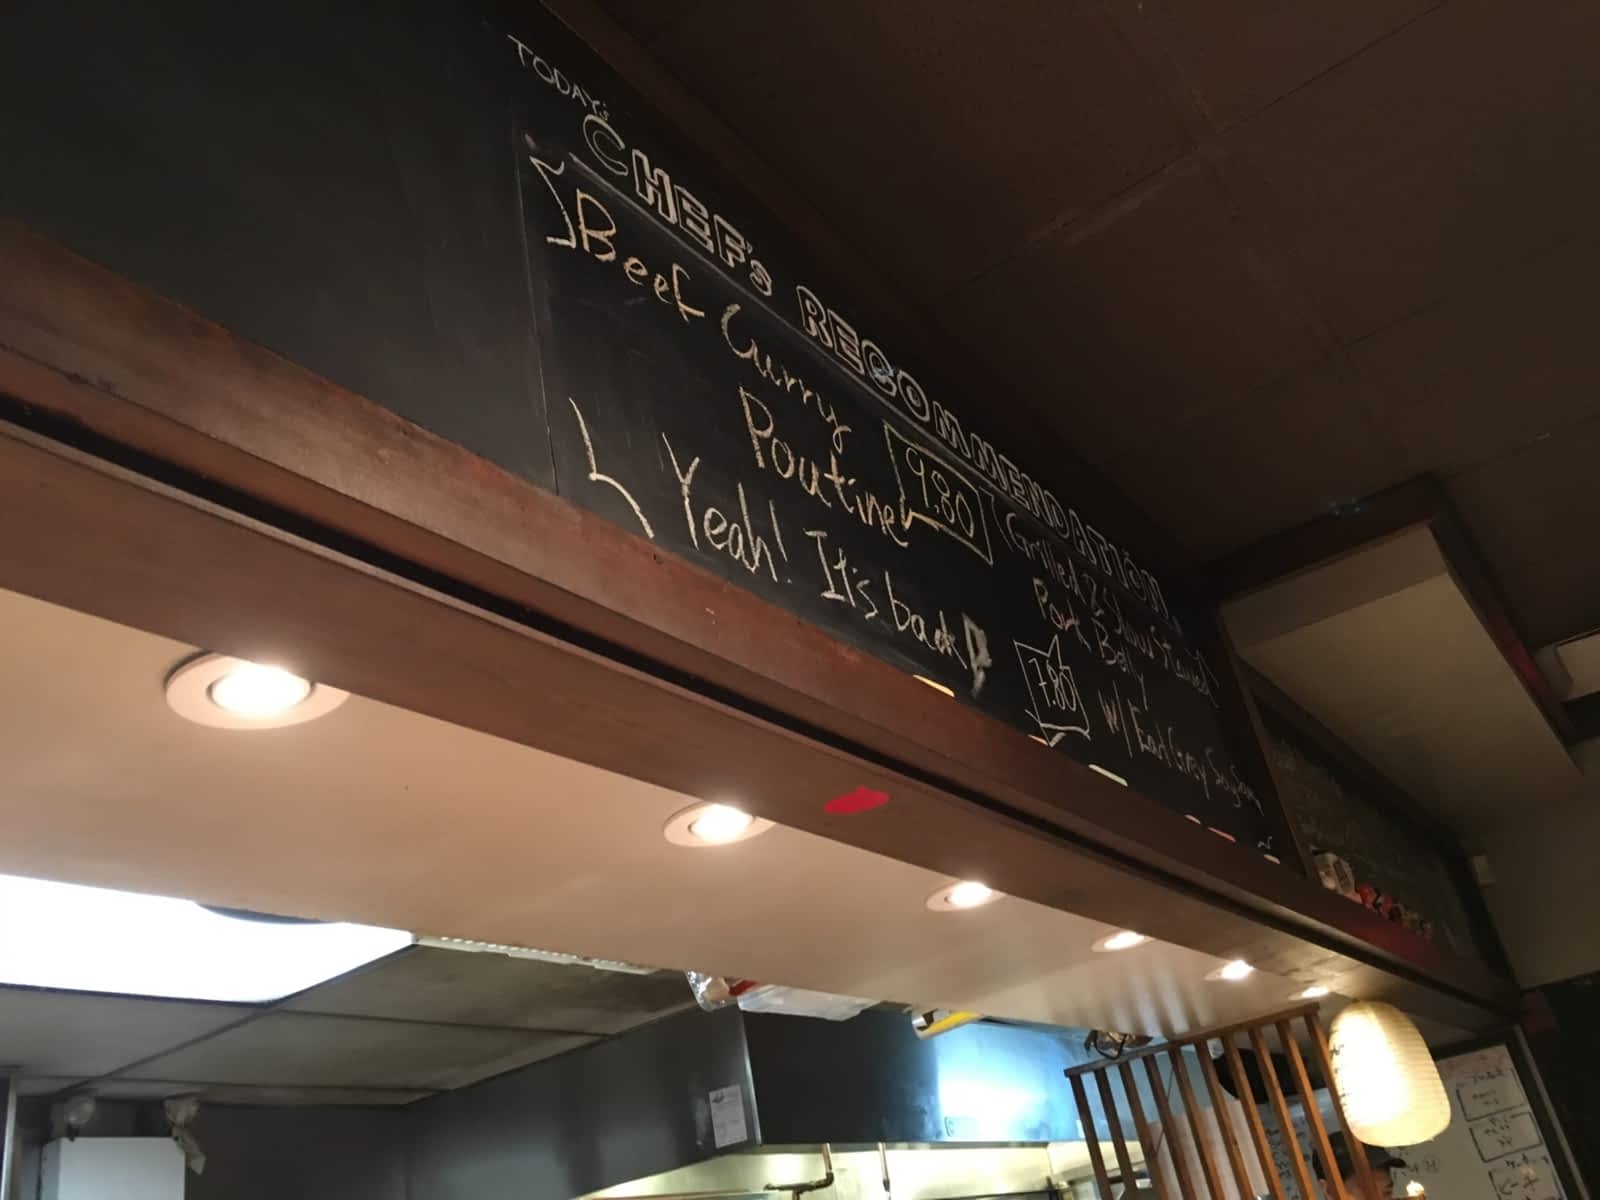 TODAY's
CHEF's RECOMMENDATION
Beef Curry
Poutine
9.80
Yeah! It's back!
Grilled & Slow Stewed
Pork Belly
7.80
W/ Earl Grey Soy Sauce